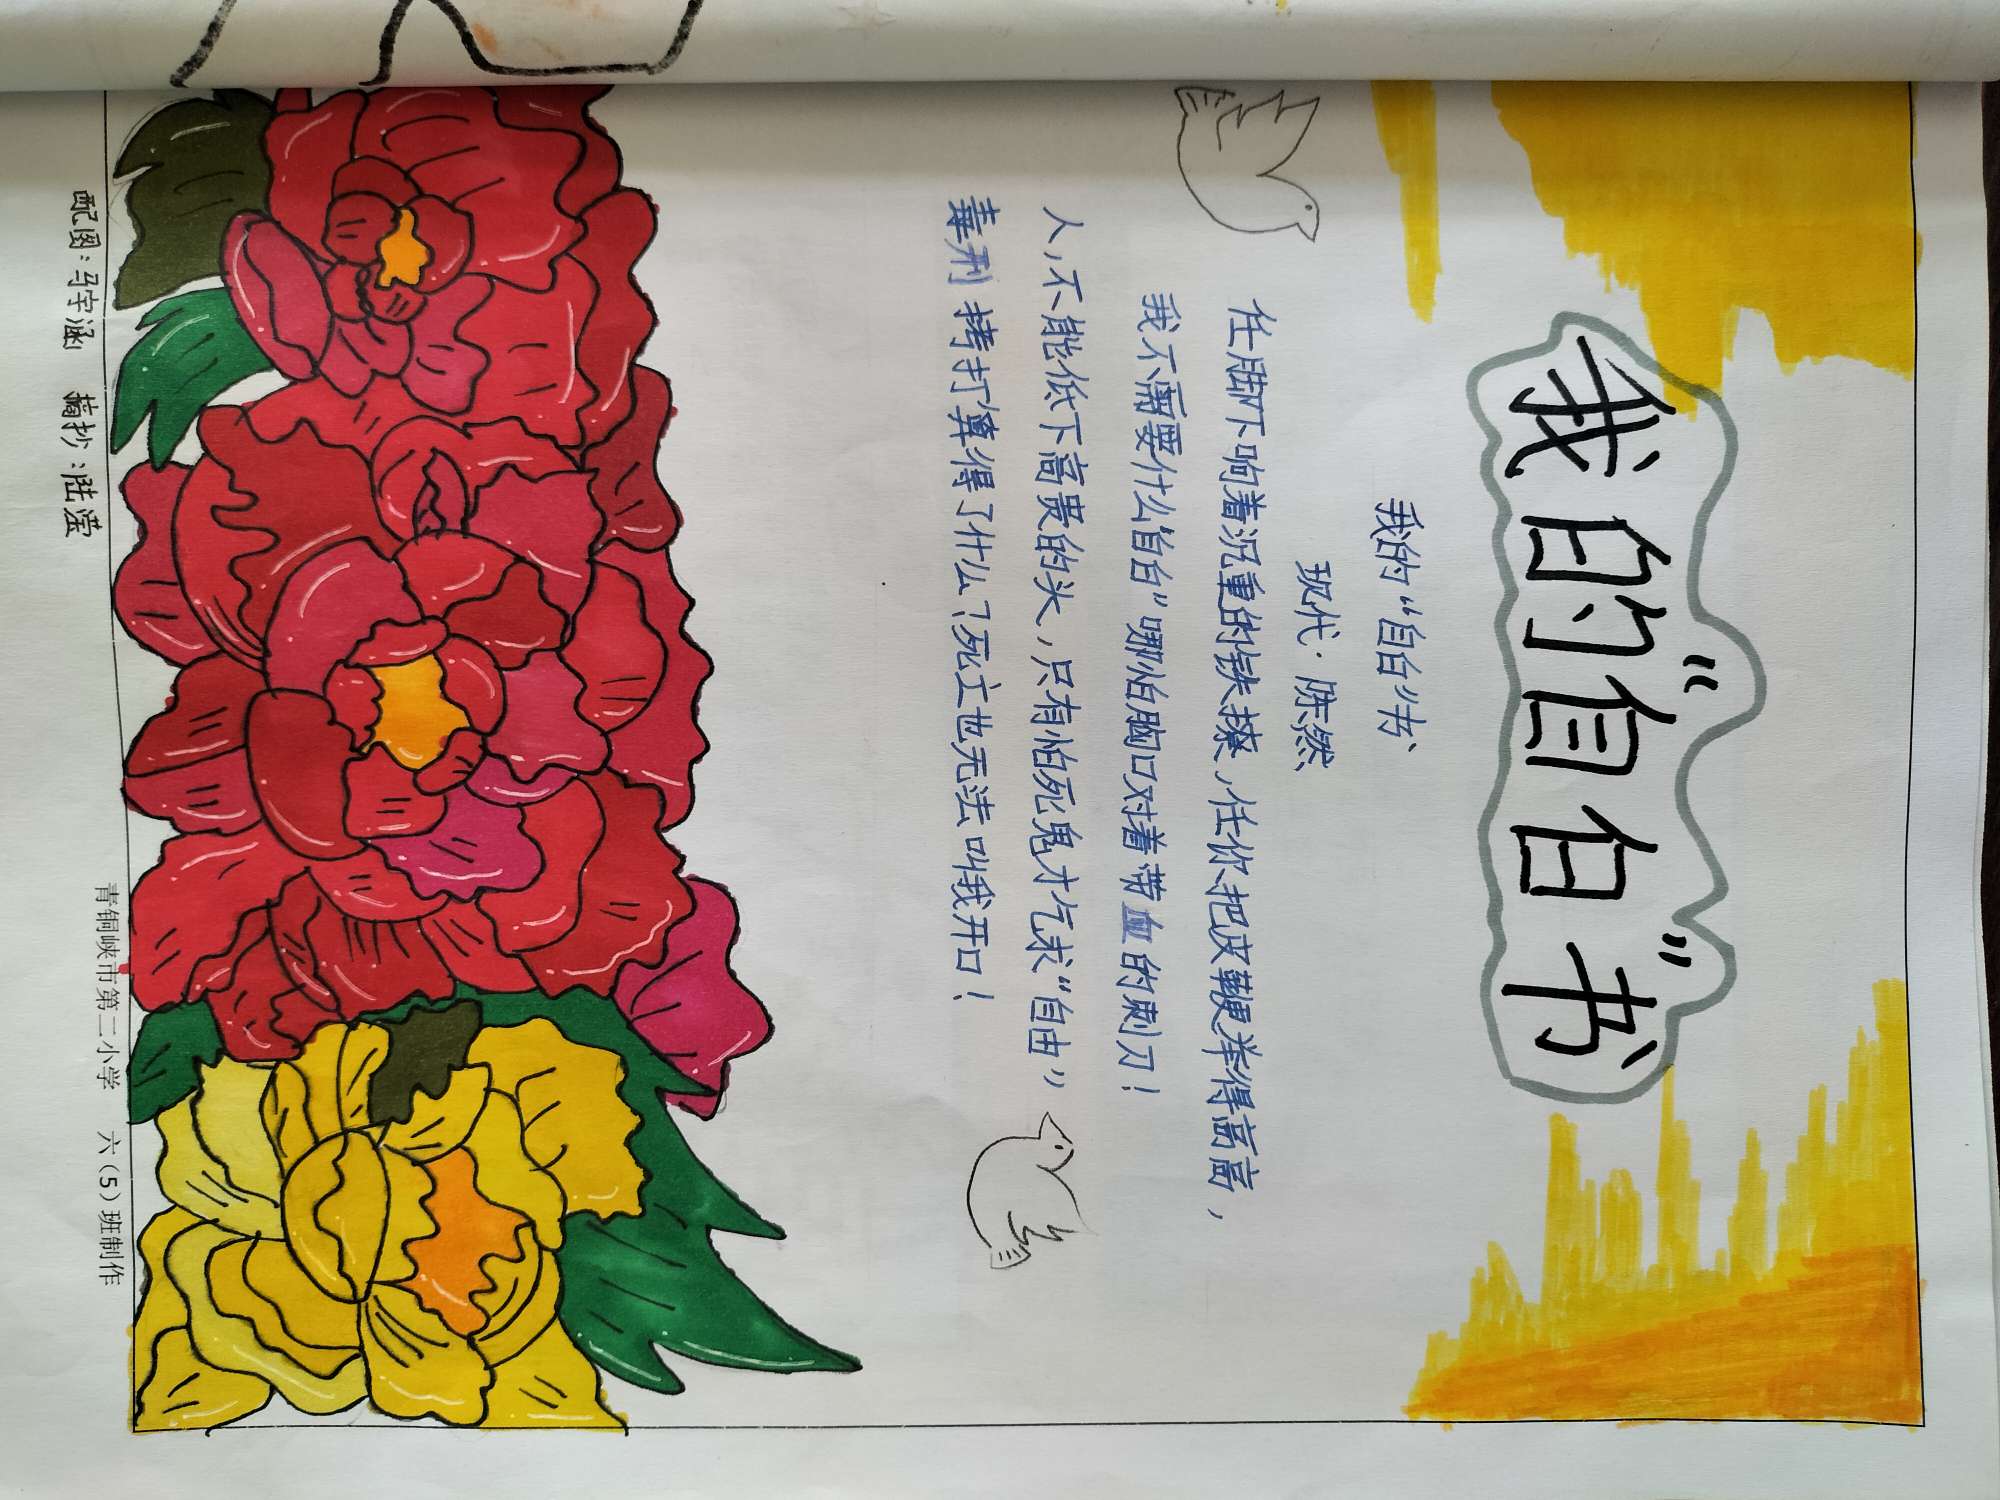 我的“自白”书
我的“自白”书
现代·陈然
任脚下响着沉重的铁镣,任你把皮鞭举得高高,
我不需要什么“自白”哪怕胸口对着带血的刺刀!
人,不能低下高贵的头,只有怕死鬼才乞求“自由”
毒刑拷打算得了什么?死亡也无法叫我开口!
配图:马宇涵 摘抄:陆滢
青铜峡市第二小学 六(5)班制作